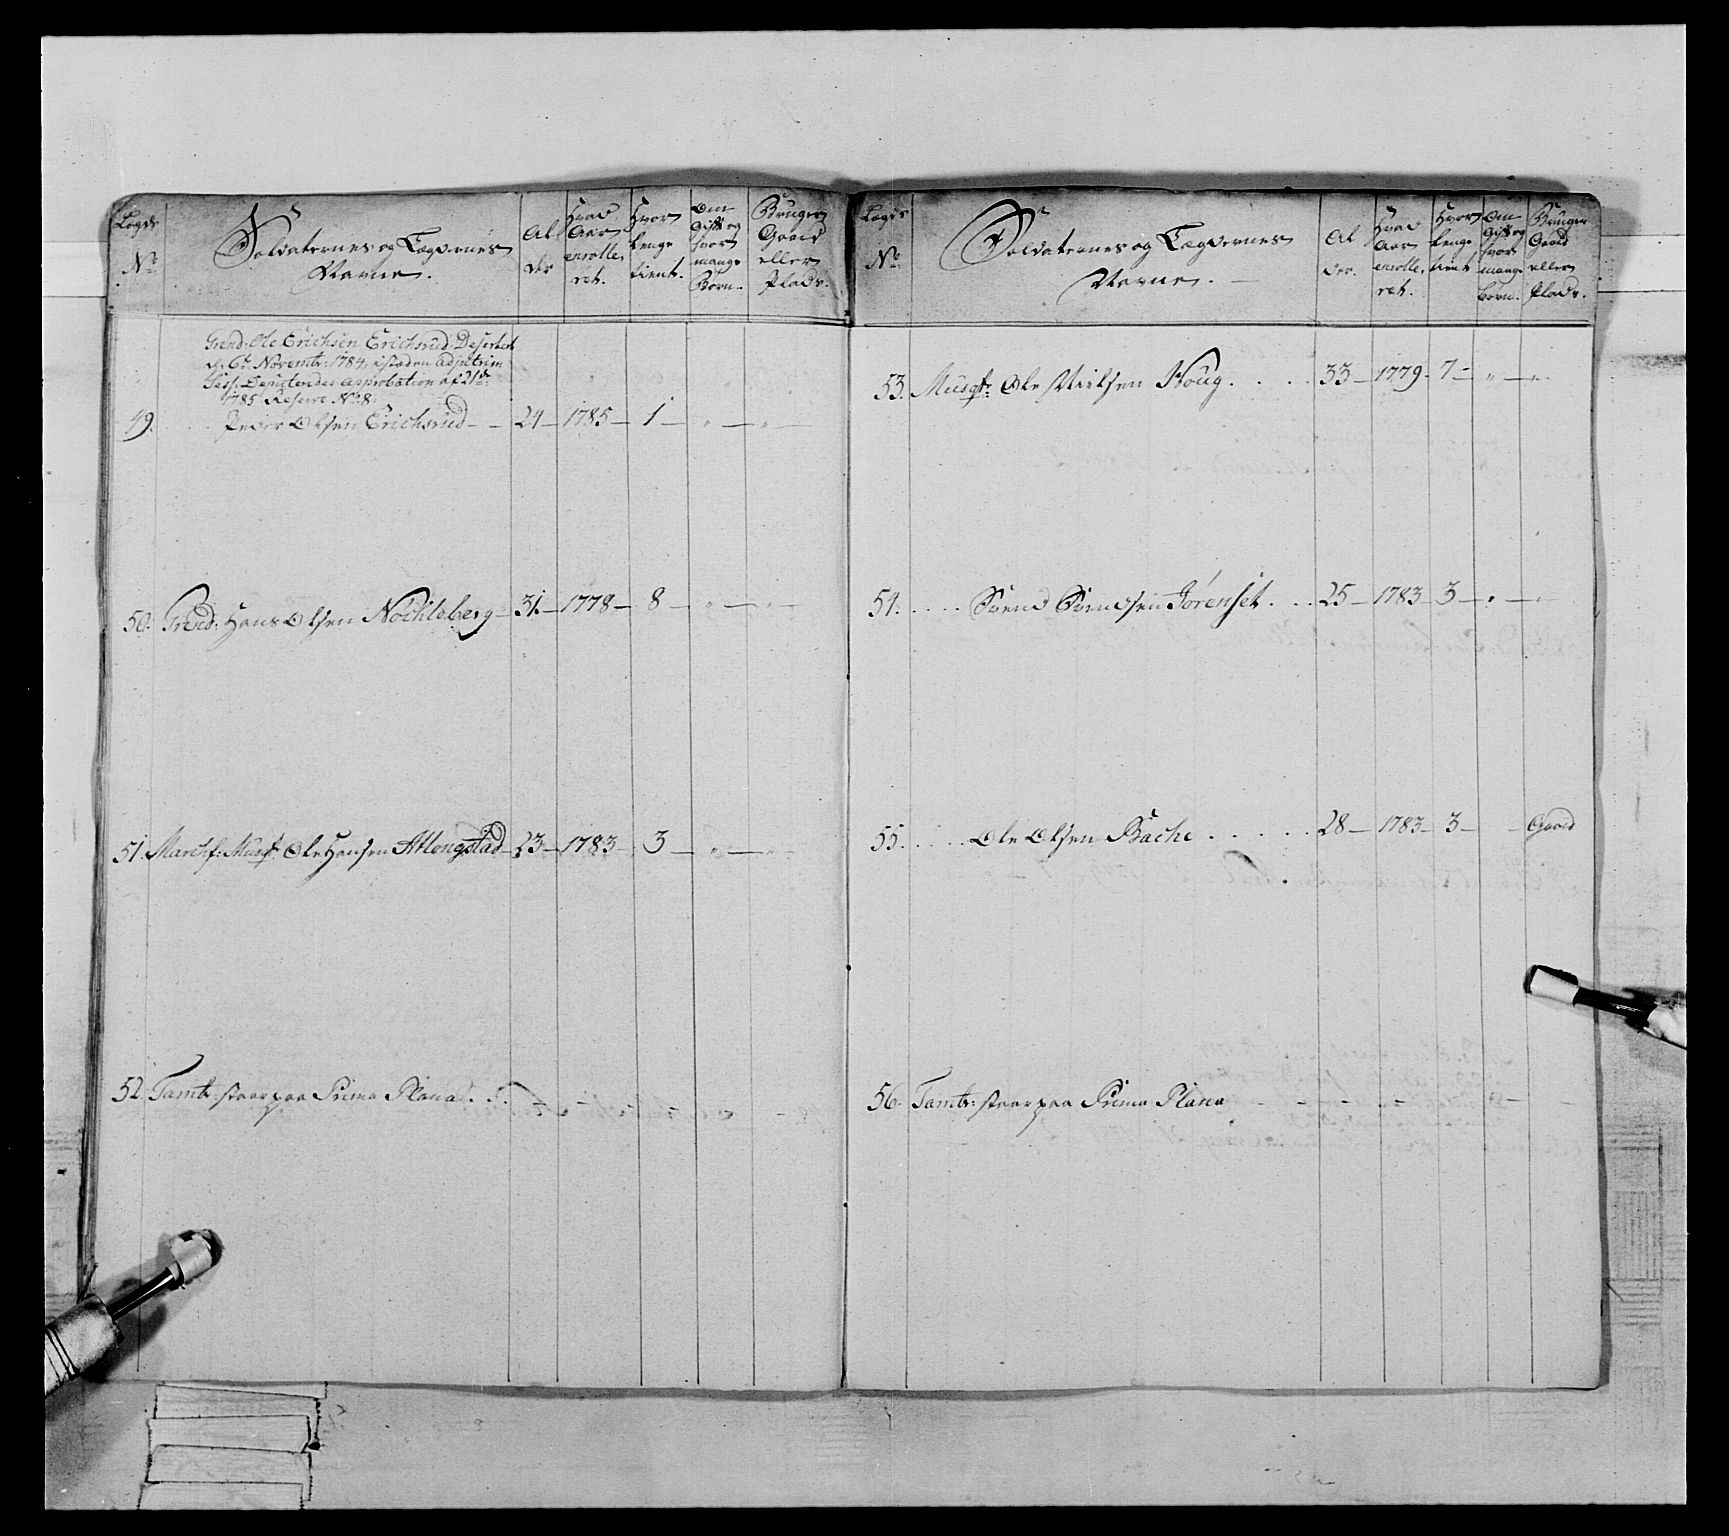 Lægds
No
Soldaternes og Lægdernes
Navne.
Al
der
Hvad
Aar
enrolle,
ret.
Hvor
lenge
tient.
Om
Gift og
hvor
mange
Børn.
Bruger
Gaard
eller
Plads.
Grend: Ole Erichsen Erichsrud Desertert
d: 6te Novembr: 1784, istæden adjutrim
Sess: Deputerdes approbation af 21de
1785 Reserve No 8.
49. Peder Olsen Erichsrud - - 24 - 1785 - 1 - " - " -
50. Grend: Hans Olsen Nöchleberg - 31. - 1778 - 8 - " - " -
51. Marchf: Musqt: Ole Hansen Atlengstad - 23 - 1783 - 3 - " - " -
52. Tambr: staar paa Prima Plana . .
Lægds
No
Soldaternes og Lægdernes
Navne. -
Al
der.
Hvad
Aar
enrolle,
ret.
Hvor
lenge
tient
Om
Gift og
hvor
mange
børn.
Bruger
Gaard
eller
Plads.
53. Musqt: Ole Nielsen Houg . . . . 33 - 1779 - 7 - " - " -
54. . . . . Svend Svendsen Jörenset . . . 25 - 1783 - 3 - " - " -
55. . . . . . Ole Olsen Bache . . . . . 28 - 1783 - 3 - - Gaard
56. Tambr: staar paa Prima Plana - - - - - -